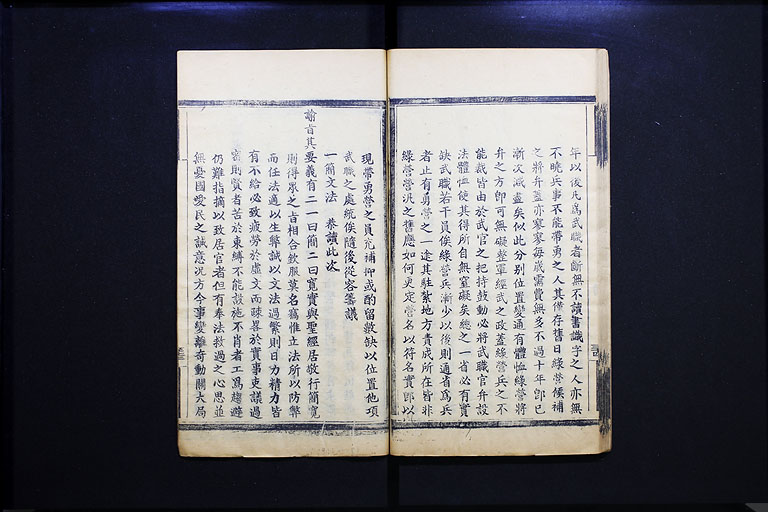 年以後凡爲武職者斷無不讀書識字之人亦無
不曉兵事不能帶勇之人其僅存舊日綠營候補
之將弁蓋亦寥寥每歲需費無多不過十年卽已
漸次減盡矣似此分别位置變通有體恤綠營將
弁之方卽可無礙整軍經武之政蓋綠營兵之不
能裁皆由於武官之把持鼓動必將武職官弁設
法體恤使其得所自無窒礙矣總之一省必有實
缺武職若干員俟綠營兵漸少以後則通省爲兵
者止有勇營之一途其駐紮地方責成所在皆非
綠營營汛之舊應如何更定營名以符名實卽以
現帶勇營之員充補抑或酌留數缺以位置他項
武職之處統俟隨後從容籌議
一簡文法 恭讀此次
諭旨其要義有二一曰簡二曰寬實與聖經居敬行簡寬
則得衆之旨相合欽服莫名竊惟立法所以防弊
而任法適以生弊誠以文法過繁則日力精力皆
有不給必致疲勞於虛文而疎畧於實事吏議過
密則賢者苦於束縛不能設施不肖者工爲趨避
仍難指摘以致居官者但有奉法救過之心思並
無憂國愛民之誠意況方今事變離奇動關大局